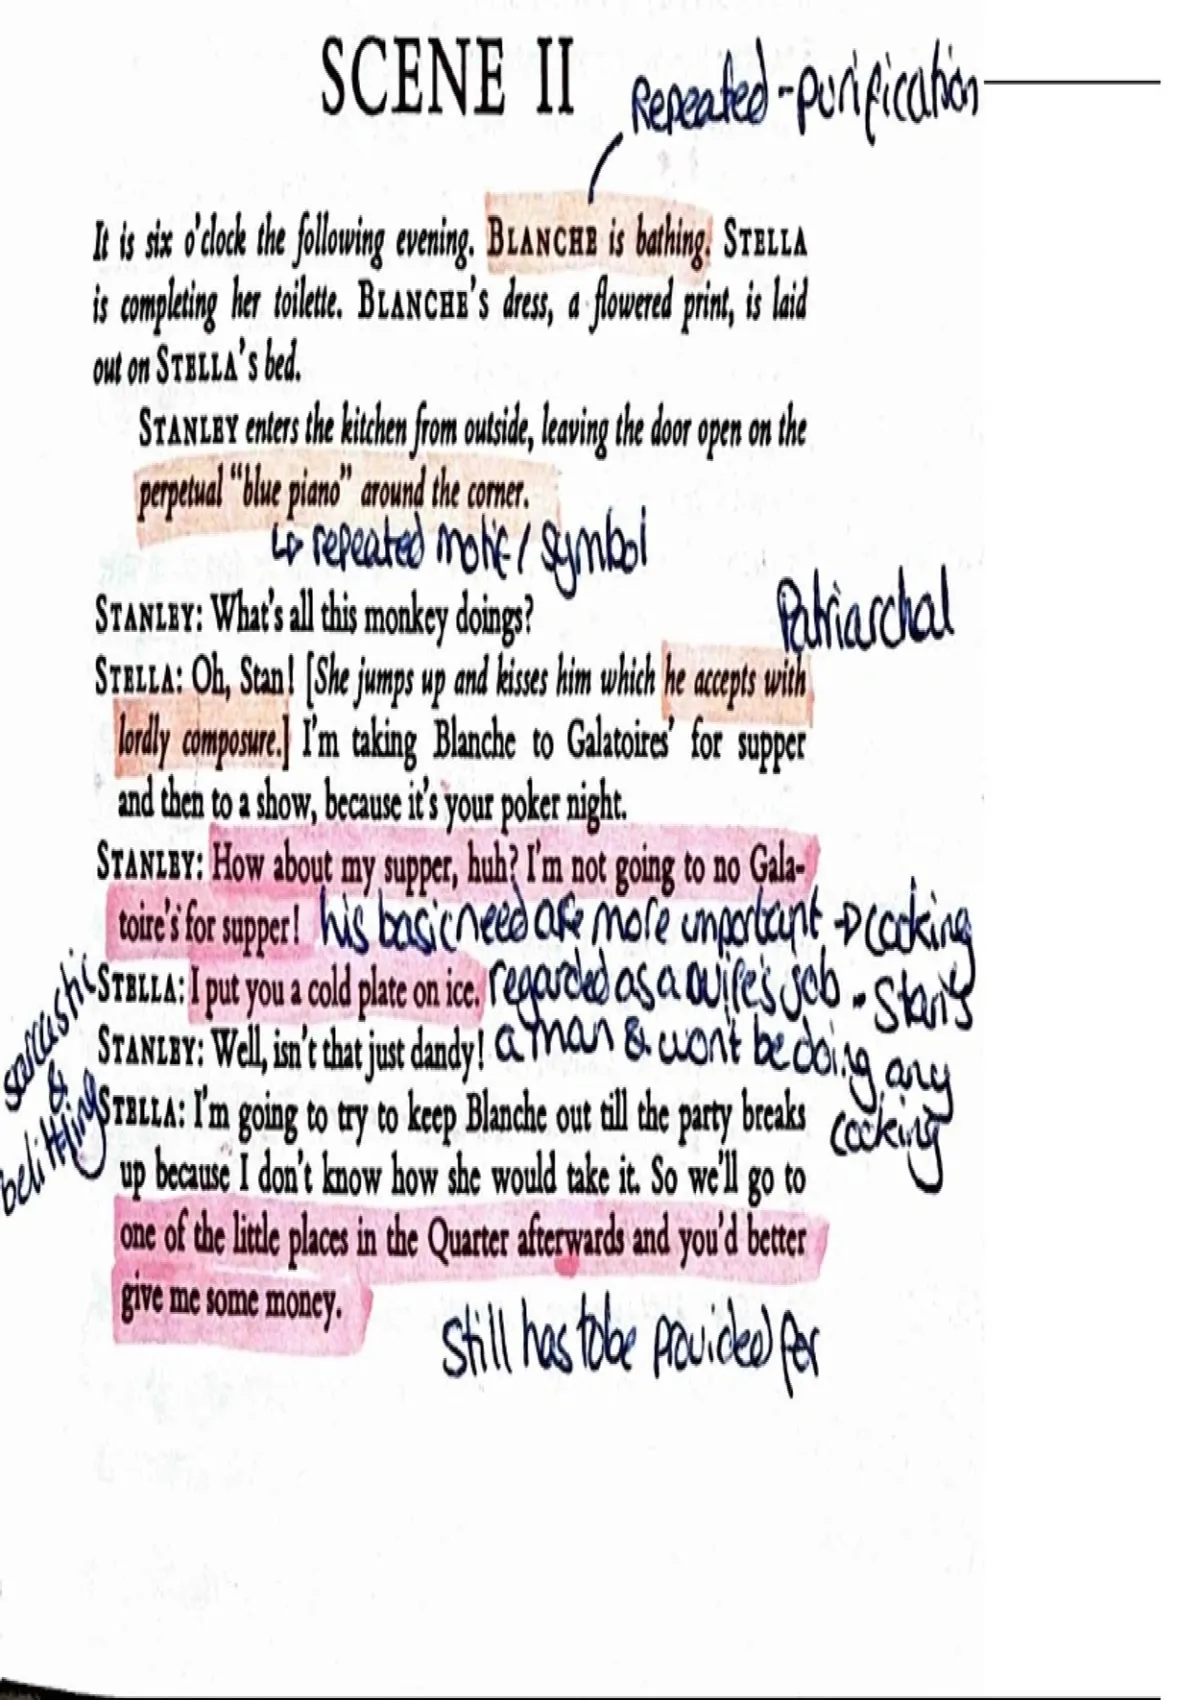 SCENE II
Repeated - purification
It is six o'clock the following evening. BLANCHE is bathing. STELLA
is completing her toilette. BLANCHE'S dress, a flowered print, is laid
out on STELLA'S bed.
STANLEY enters the kitchen from outside, leaving the door open on the
perpetual “blue piano” around the corner.
↳ repeated motif / symbol
STANLEY: What's all this monkey doings?
Patriarchal
STELLA: Oh, Stan! [She jumps up and kisses him which he accepts with
lordly composure.] I'm taking Blanche to Galatoires' for supper
and then to a show, because it's your poker night.
STANLEY: How about my supper, huh? I'm not going to no Gala-
toire's for supper!
his basic need are more important → cooking
STELLA: I put you a cold plate on ice.
regarded as a wife's job - Stan's
STANLEY: Well, isn't that just dandy!
a man & won't be doing any
cooking
sarcastic
&
belittling
STELLA: I'm going to try to keep Blanche out till the party breaks
up because I don't know how she would take it. So we'll go to
one of the little places in the Quarter afterwards and you'd better
give me some money.
Still has to be provided for